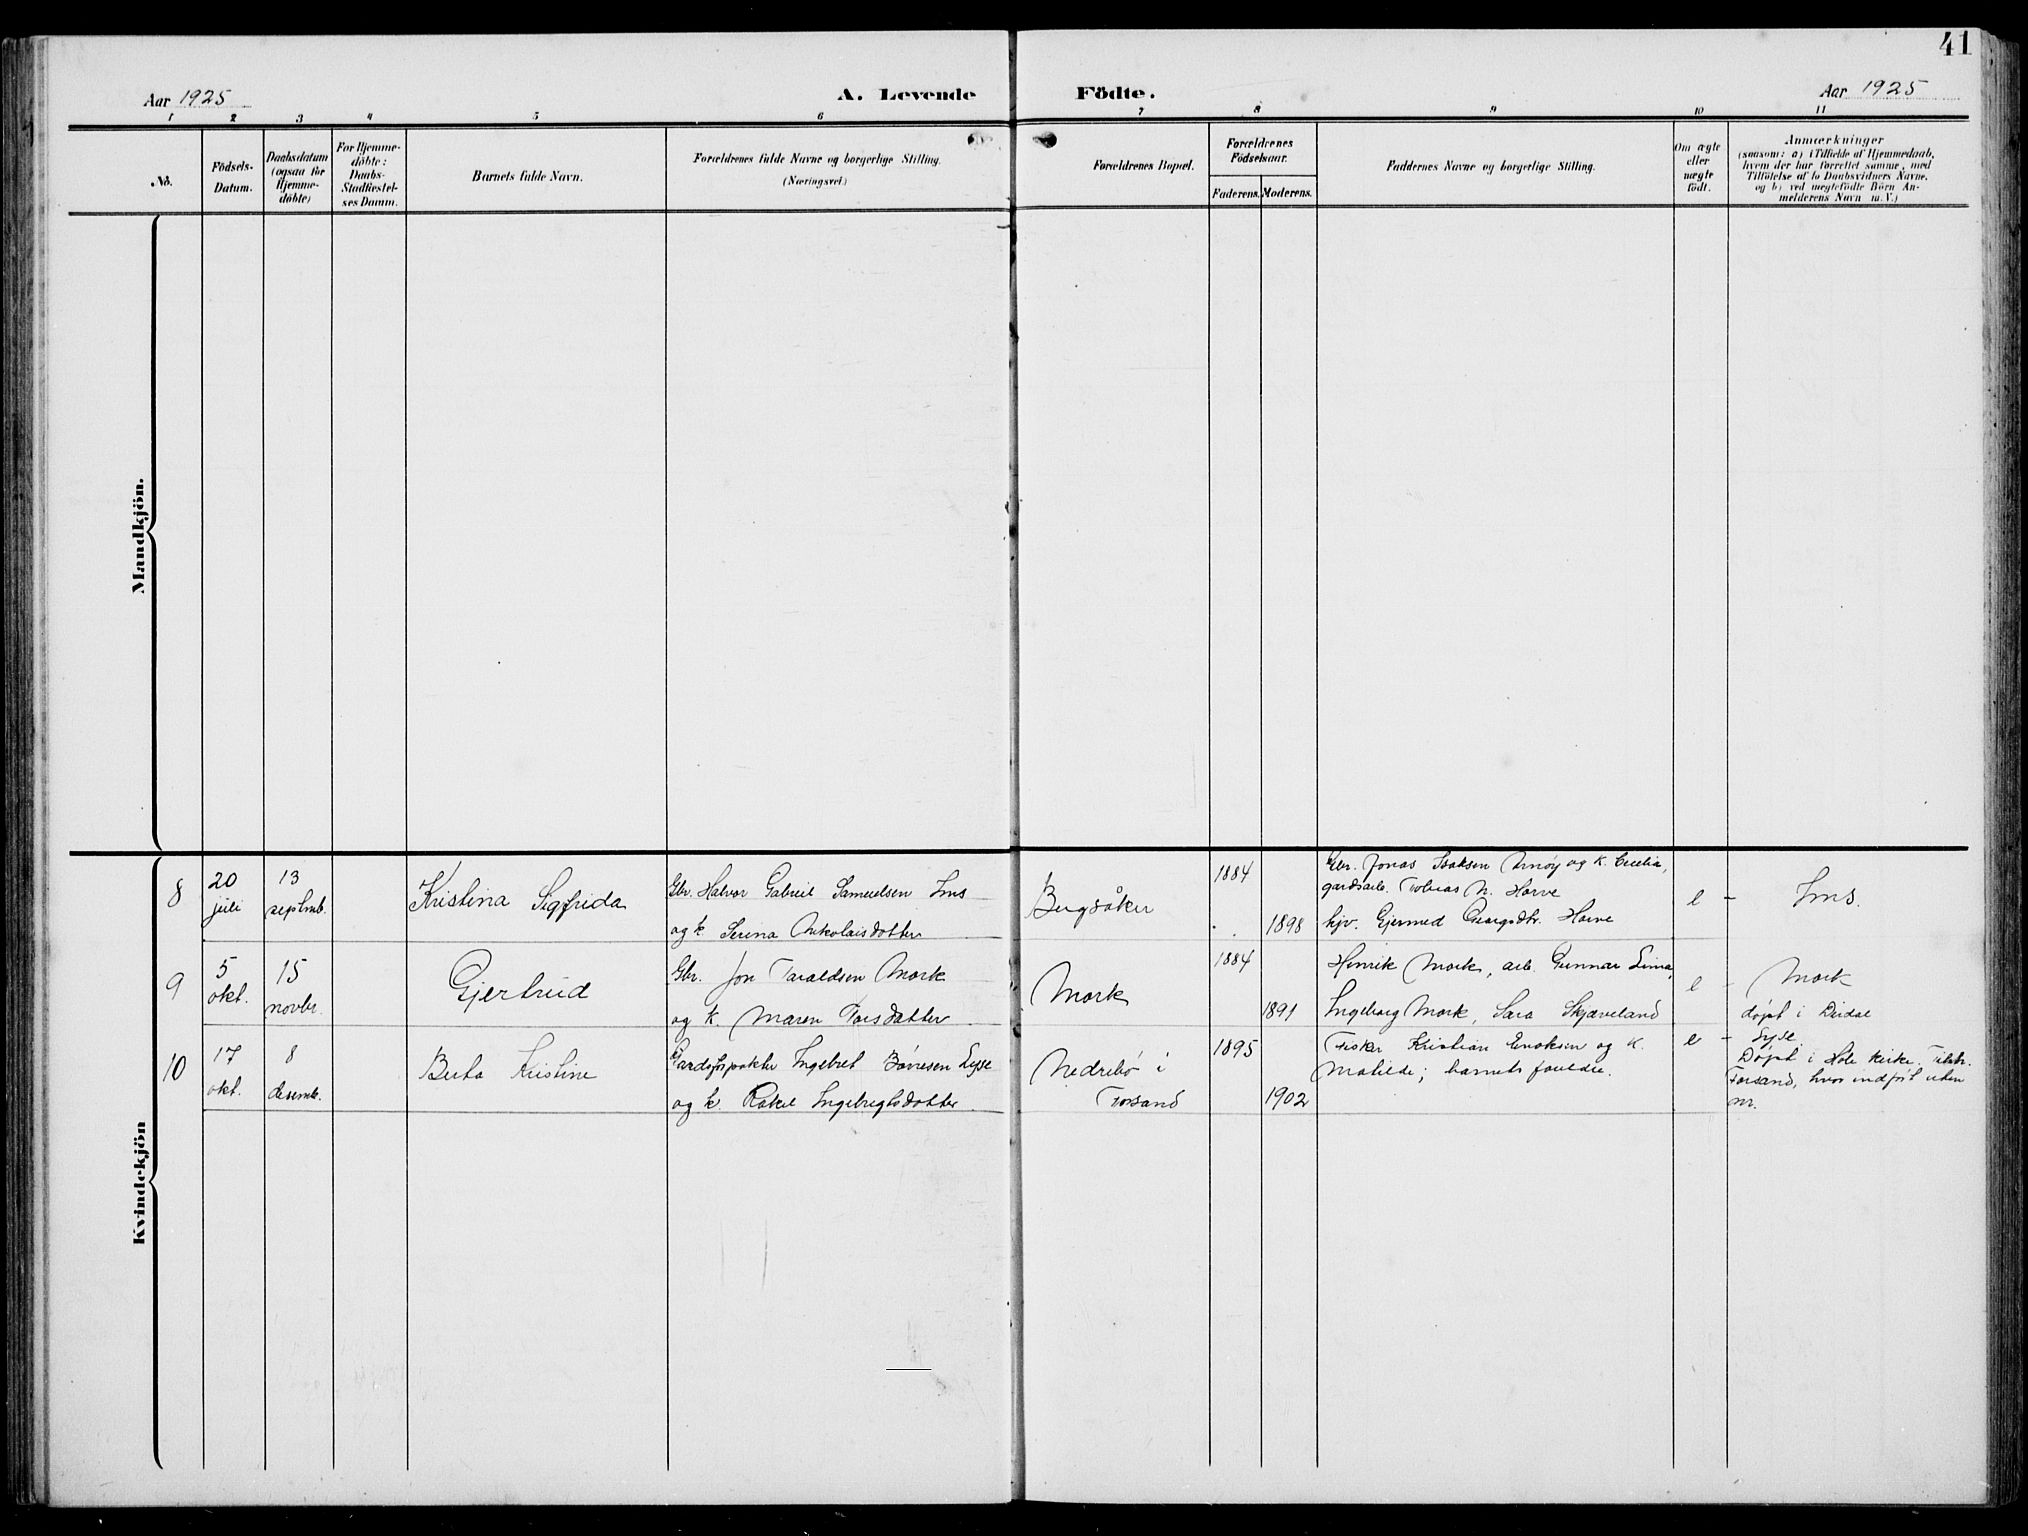 41
Aar 1925
A. Levende Födte.
Aar 1925
1 2 3 4 5 6 7 8 9 10 11
No.
Födsels-
Datum.
Daabsdatum
(ogsaa for
Hjemme-
döbte)
For Hjemme-
döbte:
Daabs-
Stadfæstel-
ses Datum.
Barnets fulde Navn.
Forældrenes fulde Navne og borgerlige Stilling.
(Næringsvei.)
Forældrenes Bopæl.
Forældrenes
Födselsaar.
Faderens. Moderens.
Faddernes Navne og borgerlige Stilling.
Om ægte
eller
uægte
födt.
Anmærkninger
(saasom: a) i Tilfælde af Hjemmedaab,
hvem der har forrettet samme, med
Tilföielse af to Daabsvidners Navne.
og b) ved uægtefödte Börn An-
melderens Navn m. V.)
Mandkjön.
Kvindekjön
8
20
juli
13
septmb.
Kristina Sigfrida
Gbr. Halvor Gabriel Samuelsen Ims
og k. Serina Nikolaisdotter
Bergsåker
1884
1898
Gbr. Jonas Isaksen Arnøy og k. Cecilia,
gardsarb. Tobias N. Harve
Harve
e - Ims.
9
5
okt.
15
novbr.
Gjertrud
Gbr. Jon Taraldsen Mork
og k. Maren Torsdatter
Mork
1884
1891
Henrik Mork, arb. Gunnar Lima,
Ingeborg Mork, Sara Skjæveland
e - Mork
døpt i Dirdal
10
17
okt.
8
desemb.
Berta Kristine
Gardsforpakter Ingebret Børresen Lyse
og k. Rakel Ingebrigtsdotter.
Nedrebø i
Forsand
1895
1902
Fisker Kristian Enoksen og k.
Matilde; barnets foreldre.
e - Lyse.
Døpt i Hole kirke.
Forsand, hvor indført uten
nr.